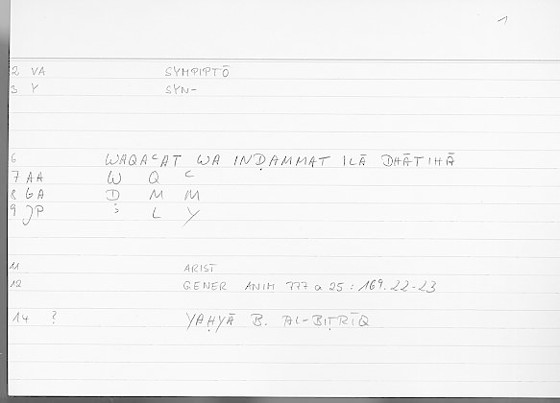 1
2 VA SYMPIPTŌ
3 Y SYN-
6 WAQAᶜAT WA INḌAMMAT ILĀ DHĀTIHĀ
7 AA W Q ᶜ
8 GA Ḍ M M
9 JP ʾ L Y
11 ARIST
12 GENER ANIM 777 a 25 : 169.22-23
14 ? YAḤYĀ B. AL-BIṬRĪQ